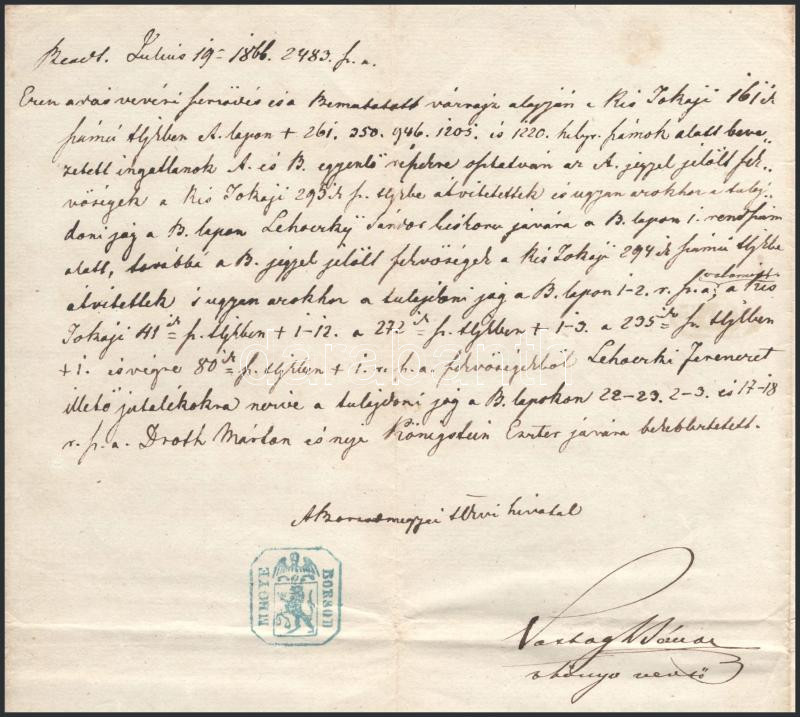 Beadt. Julius 19= 1866. 2483. sz. a.
Ezen adás vevési szerződés és a Bemutatott várrajz alapján a Kis Tokaji 161ik
számú tljkben A. lapon + 261. 350. 946. 1205. és 1220. helyr. számok alatt beve
zetett ingatlanok A. és B. egyenlő részekre osztatván az A. jeggyel jelölt fek
vőségek a Kis Tokaji 293ik sz. tljkbe átvitettek és ugyan azokhoz a tulaj
doni jog a B. lapon Lehoczky Sándor javára a B. lapon 1. rendszám
alatt, továbbá a B. jeggyel jelölt fekvőségek a Kis Tokaji 294ik számú tljkbe
átvitettek s ugyan azokhoz a tulajdoni jog a B. lapon 1-2. r. sz. a; valamint a Kis
Tokaji 41ik sz. tljkben + 1-12. a 272ik sz. tljkben + 1-3. a 235ik sz. tljkben
+1. és végre 80ik sz. tljkben + 1. r. h. a. fekvőségekből Lehoczki Ferenczet
illető jutalékokra nézve a tulajdoni jog a B. lapokon 22-23. 2-3. és 17-18
r. sz. a. Droth Márton és neje Königstein Eszter javára bekebleztetett.
A Borsodmegyei tlkvi hivatal
MEGYE BORSOD
Vastagh János